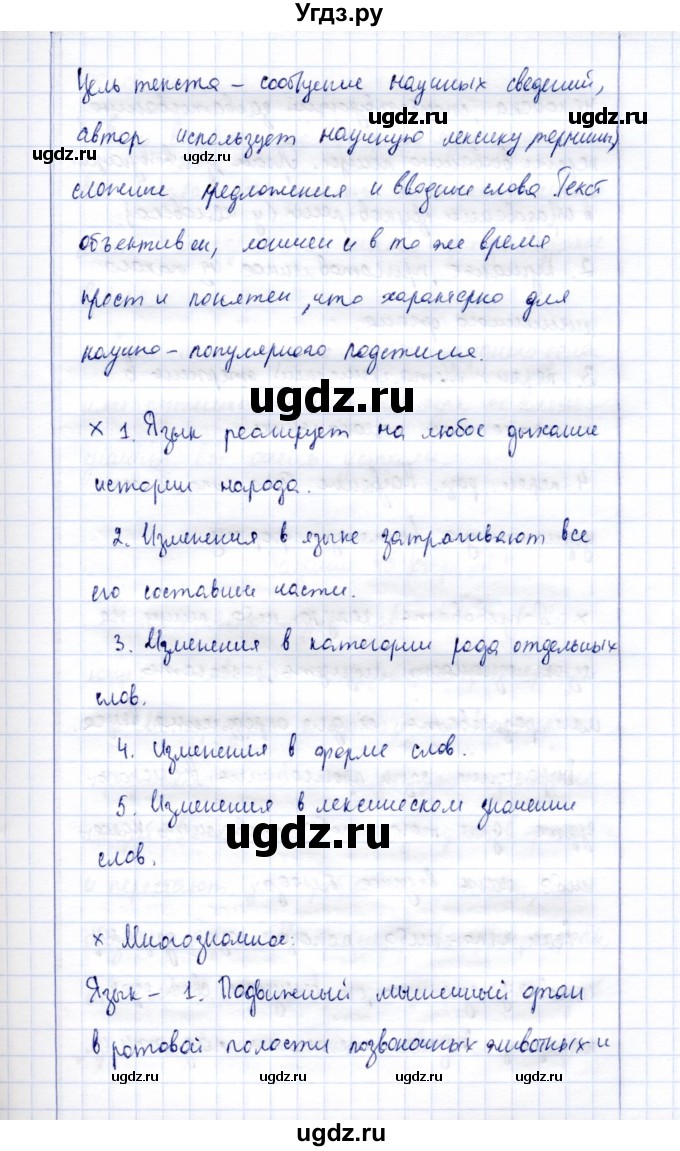 Угдз.ру
Цель текста – сообщение научных сведений,
ugdz.ru ugdz.ru
автор использует научную лексику, термины,
ugdz.ru ugdz.ru
сложные предложения и вводные слова. Текст
объективен, логичен и в то же время
прост и понятен, что характерно для
научно-популярного подстиля.
ugdz.ru
х 1. Язык реагирует на любое дыхание
истории народа.
2. Изменения в языке затрагивают все
его составные части.
3. Изменения в категории рода отдельных
слов.
4. Изменения в форме слов.
5. Изменения в лексическом значении
ugdz.ru
слов.
х Многозначное:
Язык – 1. Подвижный мышечный орган
в ротовой полости позвоночных животных и
ugdz.ru ugdz.ru ugdz.ru ugdz.ru
ugdz.ru